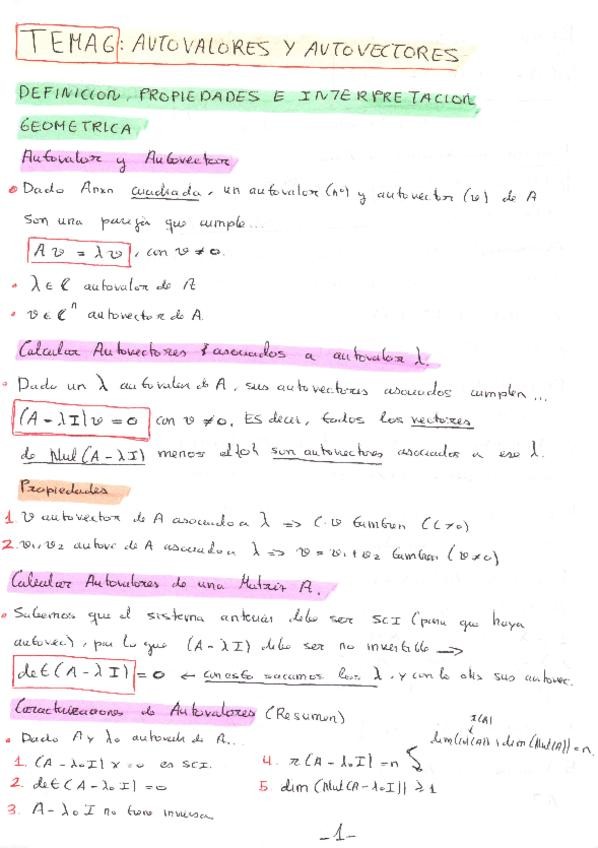 TEMA6: AUTOVALORES Y AUTOVECTORES
DEFINICION, PROPIEDADES E INTERPRETACION
GEOMETRICA
Autovalor y Autovector
• Dado Anxn cuadrada, un autovalor (nº) y autovector (v) de A
son una pareja que cumple...
Av = λv, con v ≠ 0.
• λ ∈ ℂ autovalor de A
• v ∈ ℂⁿ autovector de A.
Calcular Autovectores asociados a autovalor λ.
• Dado un λ autovalor de A, sus autovectores asociados cumplen...
(A - λI)v = 0 con v ≠ 0. Es decir, todos los vectores
de Nul(A - λI) menos el {0} son autovectores asociados a ese λ.
Propiedades
1. v autovector de A asociado a λ => C·v tambien (C≠0)
2. v₁, v₂ autove de A asociado a λ => v = v₁ + v₂ tambien (v≠0)
Calcular Autovalores de una Matriz A.
• Sabemos que el sistema anterior debe ser SCI (para que haya
autovec), por lo que (A - λI) debe ser no invertible →
det(A - λI) = 0 ← con esto sacamos los λ, y con le sus autovec.
Caracterizaciones de Autovalores (Resumen)
r(A)
dim(Col(A)) + dim(Nul(A)) = n.
• Dado A y λ₀ de A...
1. (A - λ₀I)x = 0 es SCI.
4. r(A - λ₀I) = n
2. det(A - λ₀I) = 0
5. dim(Nul(A - λ₀I)) ≥ 1
3. A - λ₀I no tiene inversa
-1-